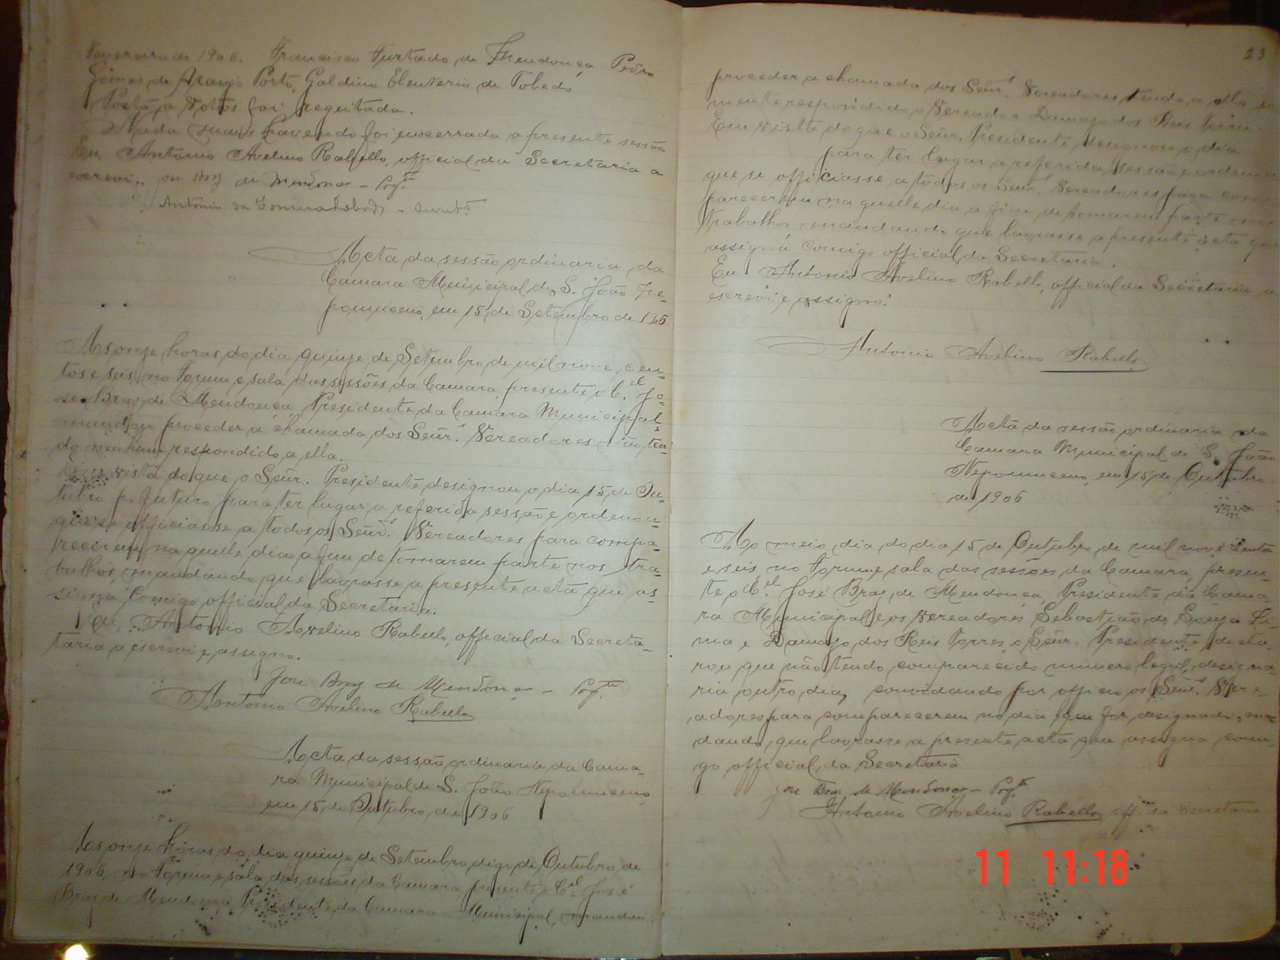 Fevereiro de 1906. Francisco Furtado de Mendonça Pedro
Gomes de Araujo Porto, Galdino Eleuterio de Toledo
Posta a votos foi regeitada.
Nada mais havendo foi encerrada a presente sessão
Eu, Antônio Avelino Rabello, official da Secretaria a
escrevi.. José Braz de Mendonça - Presᵗᵉ
Antônio da
Acta da sessão ordinaria da
Camara Municipal de S. João Ne-
pomuceno, em 15 de Setembro de 1906
As onze horas do dia quinze de Setembro de mil nove cen-
tos e seis, no Forum e sala das sessões da Camara, presente o Cᵉˡ Jo-
sé Braz de Mendonça, Presidente da Camara Municipal,
mandou proceder a chamada dos Señrˢ. Vereadores, não ten-
do nenhum respondido a ella.
Em vista do que o Señr. Presidente designou o dia 15 de Ou-
tubro p. futuro para ter lugar a referida sessão e ordenou
que se officiasse a todos os Señrˢ. Vereadores para compa-
recerem na quelle dia a fim de tomarem parte nos tra-
balhos mandando que lavrasse a presente acta que as-
signa comigo official da Secretaria.
Eu, Antonio Avelino Rabello, official da Secreta-
taria a escrevi e assigno.
José Braz de Mendonça - Presᵗᵉ
Antônio Avelino Rabello
Acta da sessão ordinaria da Cama-
ra Municipal de S. João Nepomuceno,
em 15 de Outubro, de 1906
As onze horas do dia quinze de Setembro, digo, de Outubro de
1906, no Forum e sala das sessões da Camara, presente o Cᵉˡ José
Braz de Mendonça Presidente da Camara Municipal, mandou
23
proceder a chamada dos Señrˢ. Vereadores, tendo a ella so
mente respondido o Vereador Damazo dos Reis Torres
Em vista do que o Señr. Presidente designou o dia
para ter lugar a referida sessão e ordenou
que se officiasse a todos os Señrˢ. Vereadores para com
parecerem na quelle dia a fim de tomarem parte nos
trabalhos mandando que lavrasse a presente acta que
assigna comigo official da Secretaria.
Eu Antonio Avelino Rabello, official da Secretaria a
escrevi e assigno.
Antonio Avelino Rabello
Acta da sessão ordinaria da
Camara Municipal de S. João
Nepomuceno, em 15 de Outubro
de 1906
Ao meio dia do dia 15 de Outubro de mil nove centos
e seis no Forum e sala das sessões da Camara, presen-
te o Cᵉˡ. José Braz de Mendonça Presidente da Cama-
ra Municipal, e os vereadores Sebastião de Souza Li-
ma e Damazo dos Reis Torres, o Señr. Presidente decla-
rou que não tendo comparecido numero legal, designa-
ria outro dia, convidando por officio os Señrˢ. Vere-
adores para comparecerem no dia que for designado, man
dando, que lavrasse a presente acta que assigna comi-
go official da Secretaria
José Braz de Mendonça - Presᵗᵉ
Antonio Avelino Rabello, off. da Secretaria
11 11:18